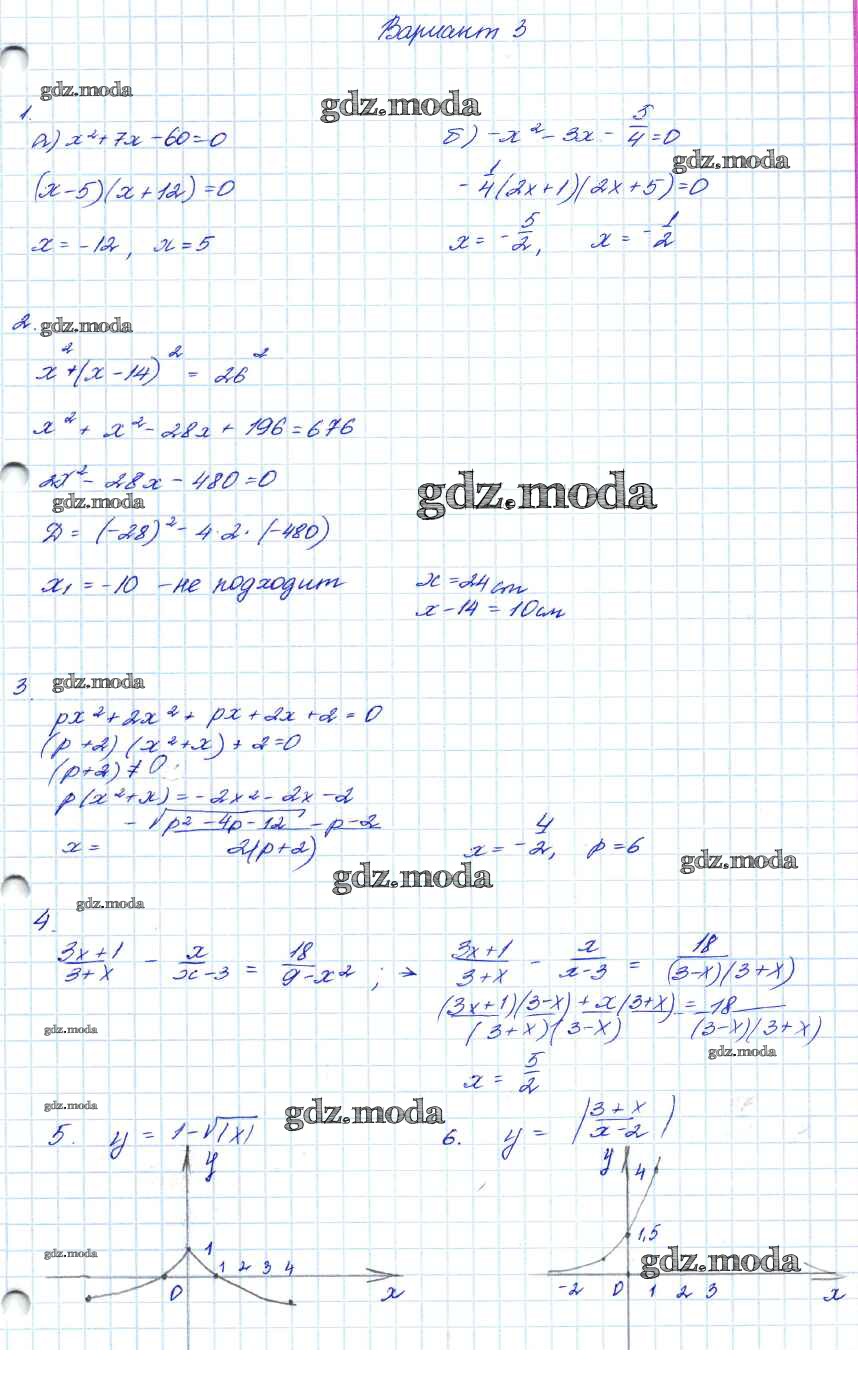 Вариант 3
gdz.moda
gdz.moda
1.
а) x² + 7x - 60 = 0
б) -x² - 3x - 5/4 = 0
gdz.moda
(x-5)(x+12) = 0
-1/4(2x+1)(2x+5) = 0
x = -12, x = 5
x = -5/2, x = -1/2
2.
gdz.moda
x² + (x-14)² = 26²
x² + x² - 28x + 196 = 676
2x² - 28x - 480 = 0
gdz.moda
gdz.moda
Д = (-28)² - 4·2·(-480)
x₁ = -10 - не подходит
x = 24 cm
x - 14 = 10 см
3.
gdz.moda
px² + 2x² + px + 2x + 2 = 0
(p+2)(x²+x) + 2 = 0
(p+2) ≠ 0
p(x²+x) = -2x² - 2x - 2
x = (-√(p² - 4p - 12) - p - 2)/(2(p+2))
x = -4/2, p = 6
gdz.moda
gdz.moda
gdz.moda
4.
(3x+1)/(3+x) - x/(x-3) = 18/(9-x²); →
(3x+1)/(3+x) - x/(x-3) = 18/((3-x)(3+x))
((3x+1)(3-x) + x(3+x))/((3+x)(3-x)) = 18/((3-x)(3+x))
gdz.moda
gdz.moda
x = 5/2
gdz.moda
gdz.moda
5. y = 1-√|x|
6. y = |(3+x)/(x-2)|
y
y
4
1
1,5
gdz.moda
gdz.moda
1 2 3 4
0
x
-2 0 1 2 3
x